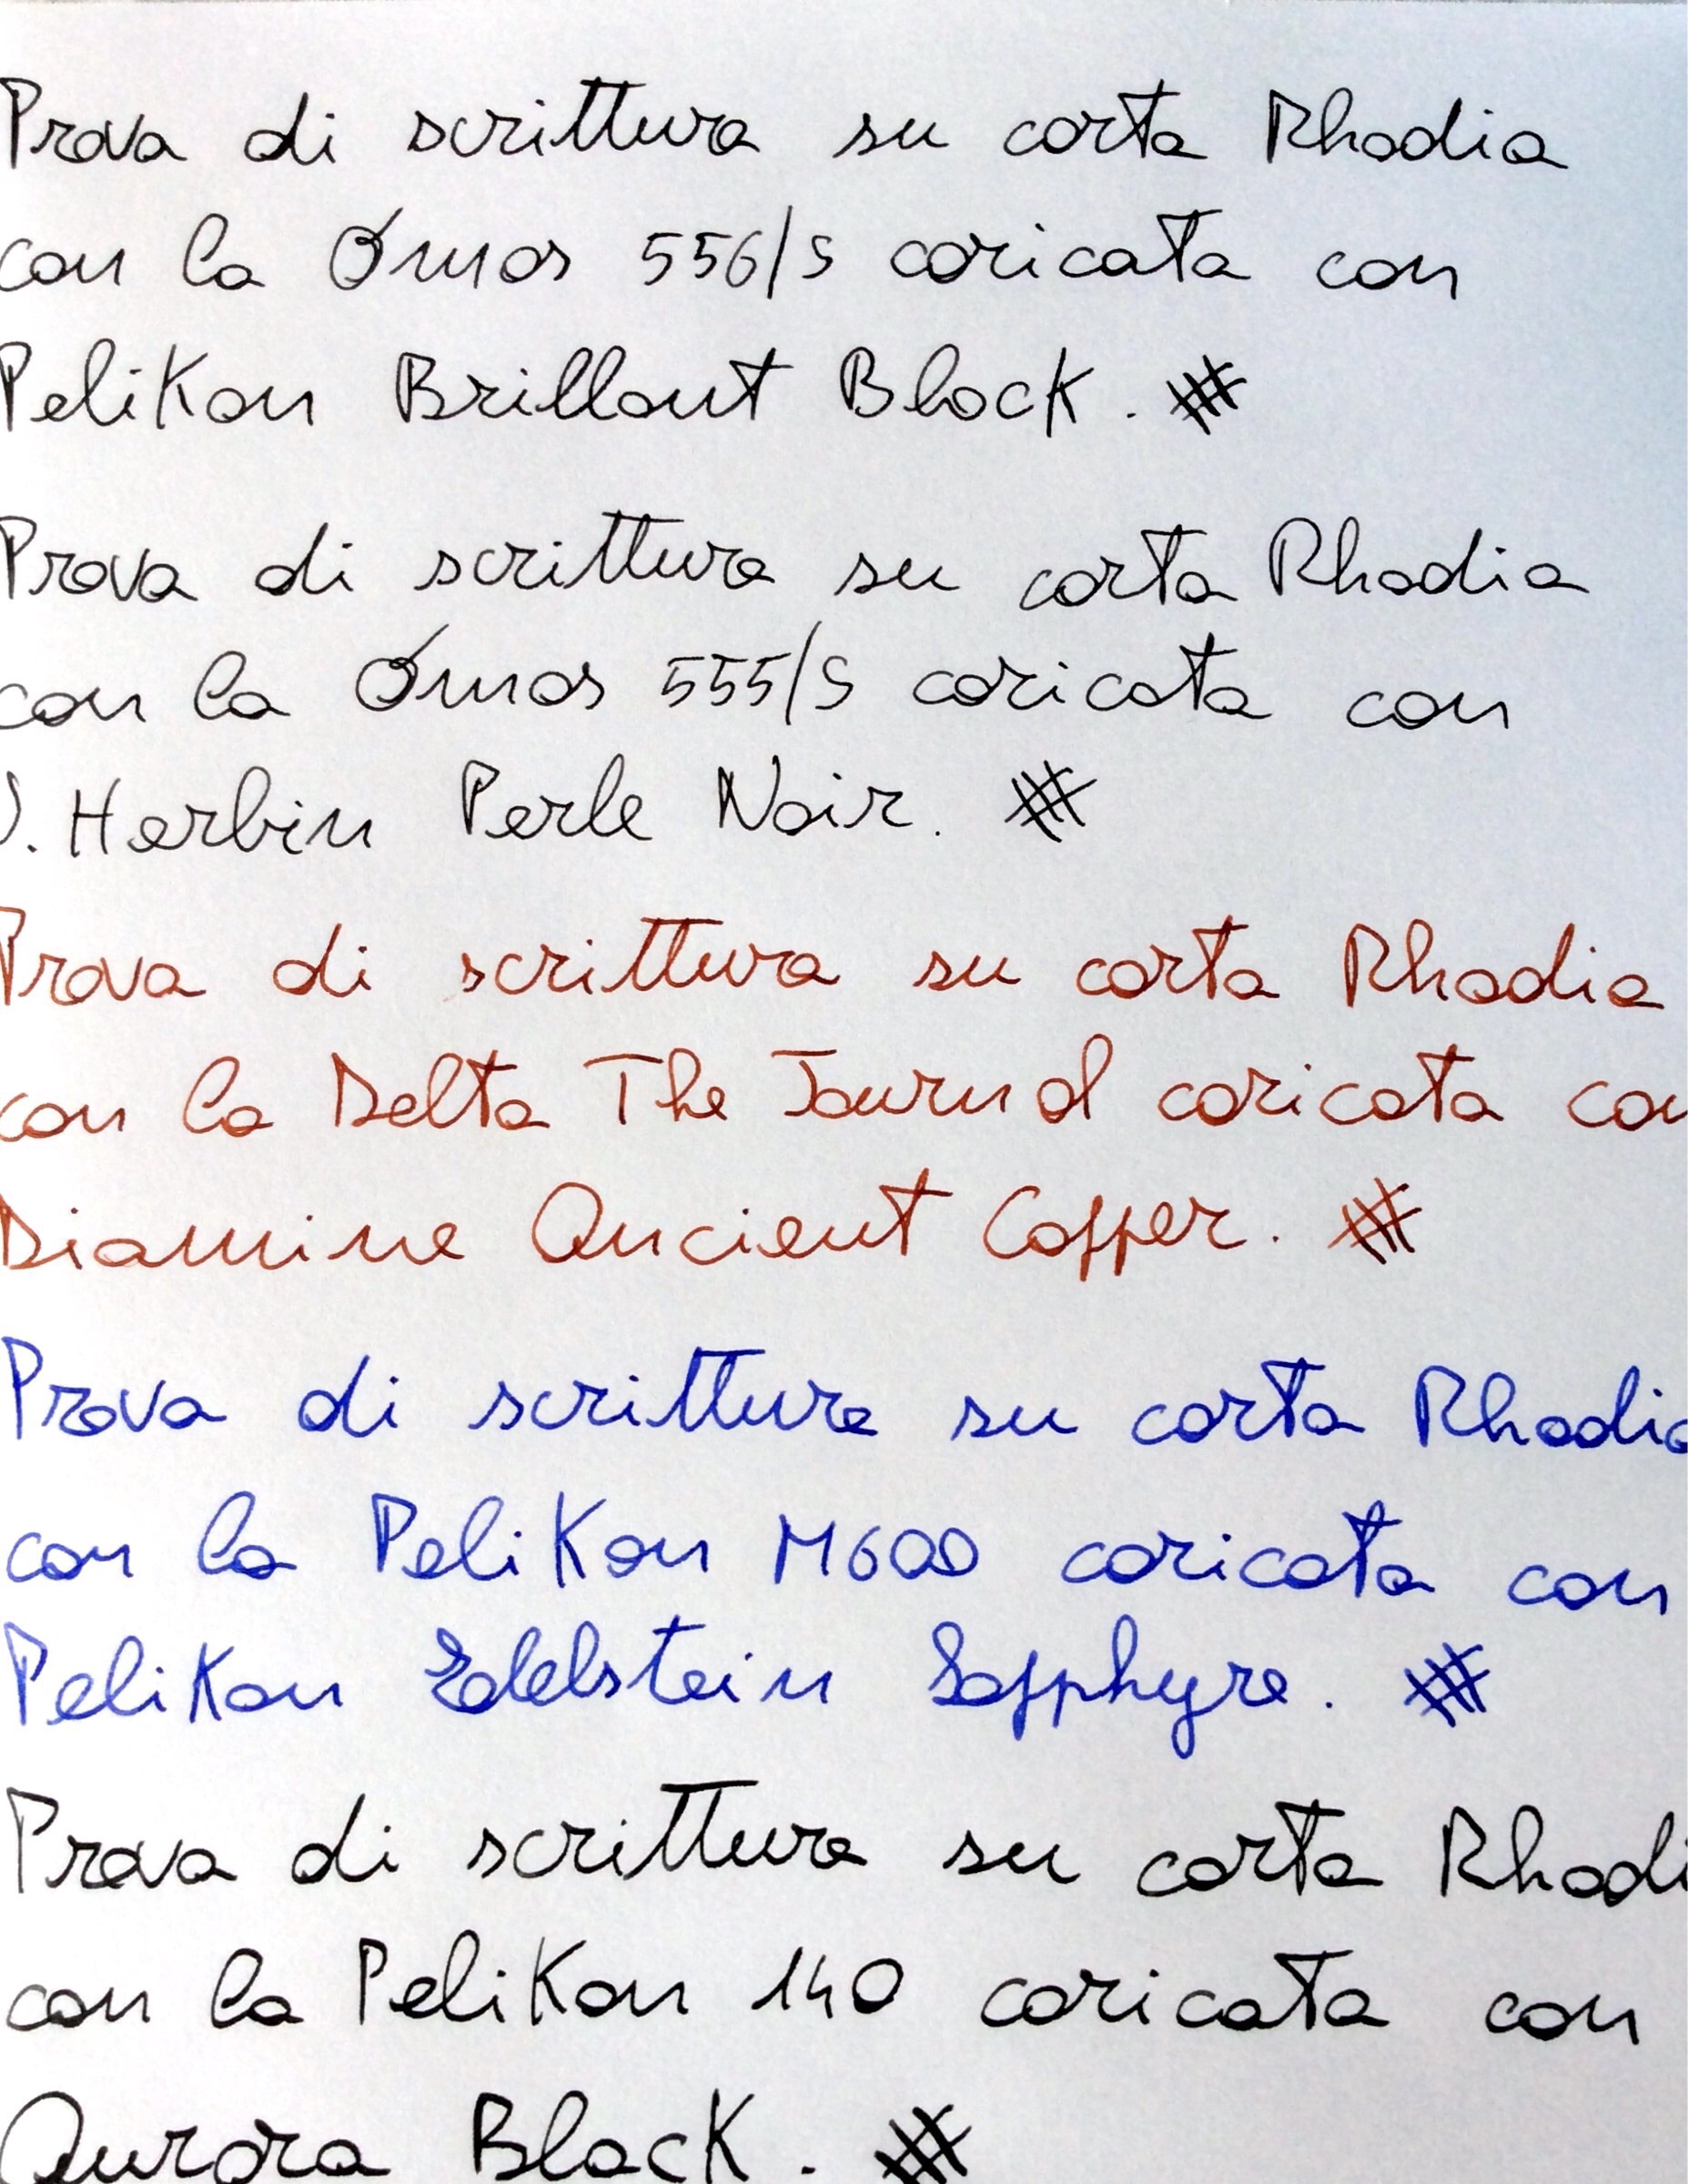 Prova di scrittura su carta Rhodia
con la Omas 556/S caricata con
Pelikan Brillant Black. #
Prova di scrittura su carta Rhodia
con la Omas 555/S caricata con
J. Herbin Perle Noir. #
Prova di scrittura su carta Rhodia
con la Delta The Journal caricata con
Diamine Ancient Copper. #
Prova di scrittura su carta Rhodia
con la Pelikan M600 caricata con
Pelikan Edelstein Sapphyre. #
Prova di scrittura su carta Rhodi
con la Pelikan 140 caricata con
Aurora Black. #